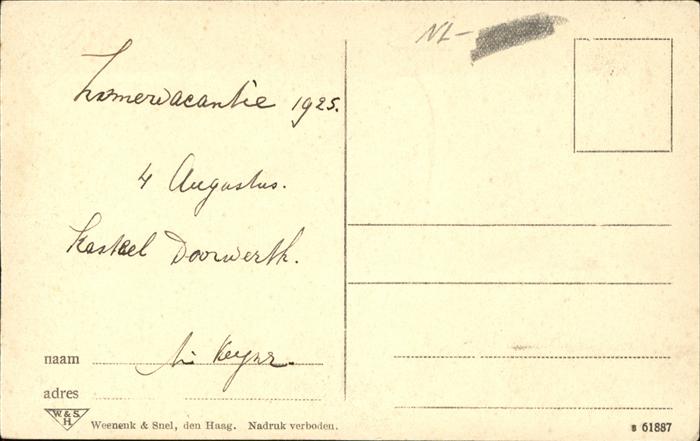 NL-
Zomervacantie 1925.
4 Augustus.
Kasteel Doorwerth.
naam
adres
W. & S.
H.
Weenenk & Snel, den Haag. Nadruk verboden.
B 61887